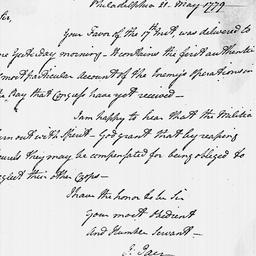 Philadelphia 21. May 1779
Sir,
Your Favor of the 17th Inst, was delivered to
me Yesterday morning – It contains the first authentic
most particular account of the Enemy's Operations in
the Bay that Congress have yet received –
I am happy to hear that the Militia
turn out with Spirit – God grant that by reaping
they may be compensated for being obliged to
neglect their other Crops –
I have the honor to be Sir
Your most Obedient
And Humble Servant –
J. Jay